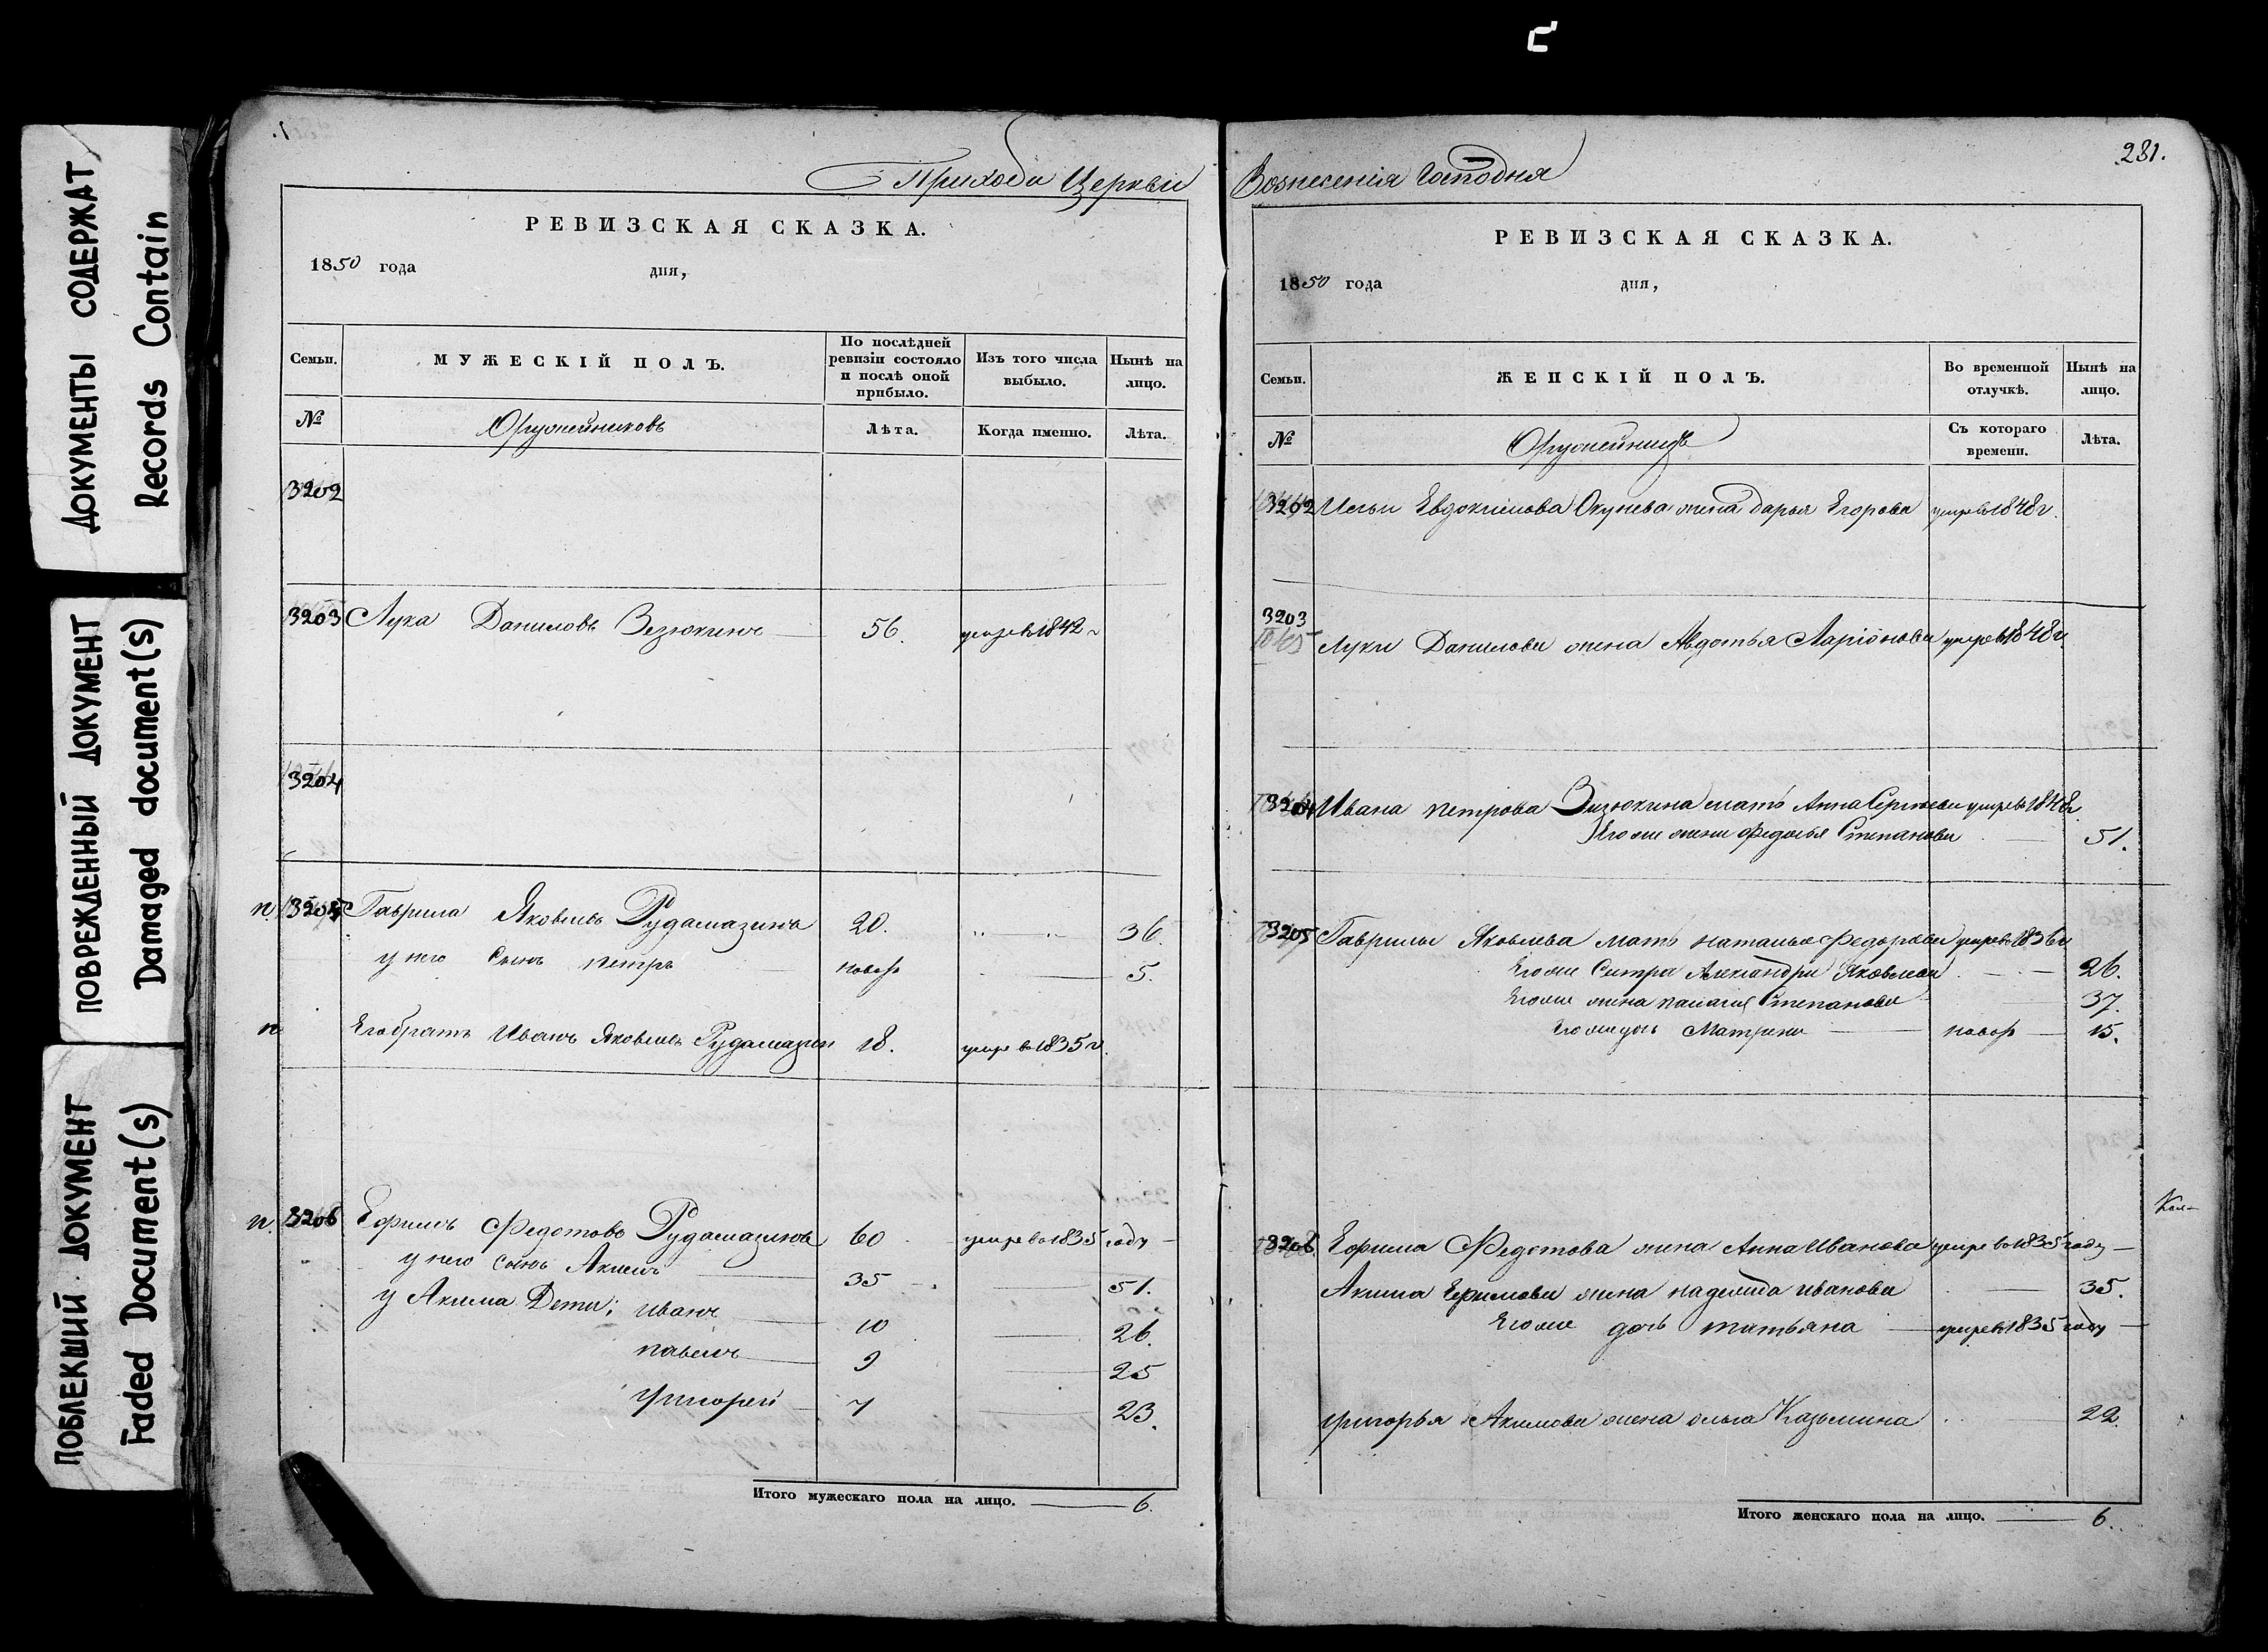 ДОКУМЕНТЫ СОДЕРЖАТ
Records Contain
ПОВРЕЖДЕННЫЙ ДОКУМЕНТ
Damaged document(s)
ПОБЛЕКШИЙ ДОКУМЕНТ
Faded Document(s)
Прихода Церкви
РЕВИЗСКАЯ СКАЗКА.
1850 года дня,
Семьи. МУЖЕСКІЙ ПОЛЪ. По послѣдней ревизіи состояло и послѣ оной прибыло. Изъ того числа выбыло. Нынѣ на лицо.
№ Оружейниковъ Лѣта. Когда именно. Лѣта.
3202
3203 Лука Даниловъ Зезюкинъ 56. умре в 1842 г
3204
п. 3205 Гаврила Яковлевъ Рудамазинъ 20. 36.
у него Сынъ петръ новор 5.
п Его братъ Иванъ Яковлевъ Рудамазин 18. умре во 1835 г.
п. 3206 Ефимъ Федотовъ Рудамазинъ 60 умре во 1835 году
у него сынъ Акимъ 35 51.
у Акима Дети; иванъ 10 26.
павелъ 9 25
григорей 7 23.
Итого мужескаго пола на лицо. 6.
281.
Вознесенія Господня
РЕВИЗСКАЯ СКАЗКА.
1850 года дня,
Семьи. ЖЕНСКІЙ ПОЛЪ. Во временной отлучкѣ. Нынѣ на лицо.
№ Оружейницъ Съ котораго времени. Лѣта.
3202 Ильи Евдокимова Окунева жена дарья Егорова умре в 1848 г.
3203
Луки Данилова жена Авдотья Ларіонова умре в 1848 г.
3204 Ивана петрова Зизюкина мать Анна Сергеева умре в 1848 г.
Его же жена федосья Степанова 51.
3205 Гаврилы Яковлева мать наталья Федорова умре в 1836 г
Его же Систра Александра Яковлева 26.
Его же жена палагия Степанова 37.
Его же дочь Матрена новор 15.
Кол-
3206 Ефима Федотова жена Анна Иванова умре во 1835 году
Акима Ефимова жена надежда иванова 35.
Его же дочь татьяна умре в 1835 году
григорья Акимова жена ольга Казьмина 22.
Итого женскаго пола на лицо. 6.